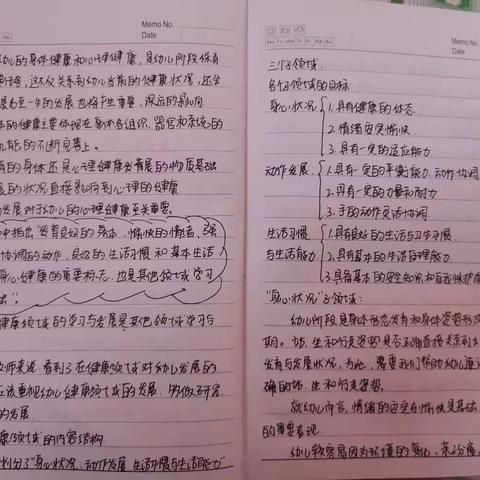 Memo No.
Date
幼儿的身体健康和心理健康，是幼儿阶段保育
这不仅关系到幼儿当前的健康状况，还会
展乃至一生的发展也将产生重要、深远的影响
的健康主要体现在身体各组织、器官和系统的
机能的不断完善上。
育的身体还是心理健康发育展的物质基础
展的状况直接影响到心理的健康
的发展对于幼儿的心理健康至关重要。
中指出"发育良好的身体、愉快的情绪、强
协调的动作、良好的生活习惯和基本生活
身心健康的重要标志，也是其他领域学习
出"。
健康领域的学习与发展是其他领域学习与
教师来说，看到了在健康领域对幼儿发展的
应该重视幼儿健康领域的发展，
的发展.
康领域的内容结构
划分了"身心状况、动作发展、生活习惯与生活能力"
Memo No.
Mo Tu We Th Fr Sa Su
Date
三个子领域.
各个子领域的目标:
身心状况 1.具有健康的体态.
2.情绪安定愉快.
3.具有一定的适应能力.
动作发展. 1.具有一定的平衡能力,动作协调
2.具有一定的力量和耐力.
3.手的动作灵活协调.
生活习惯 1.具有良好的生活与卫生习惯.
与生活能力 2.具有基本的生活自理能力.
3.具备基本的安全知识和自我保护
"身心状况"子领域:
幼儿阶段是身体形态发育和身体姿势形成
期。站、坐和行走姿势是否正确直接关系到
发育与发展状况，为此，需要我们帮助幼儿
确的站、坐和行走姿势.
就幼儿而言，情绪的安定和愉快是其
的重要表现.
幼儿较容易因为环境的变化、